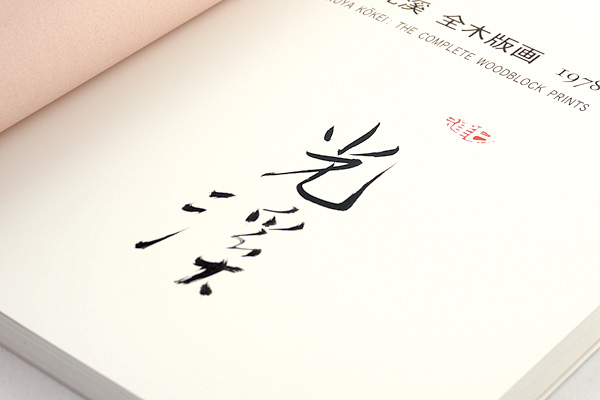 溪 全木版画 1978
KŌKEI: THE COMPLETE WOODBLOCK PRINTS
光溪